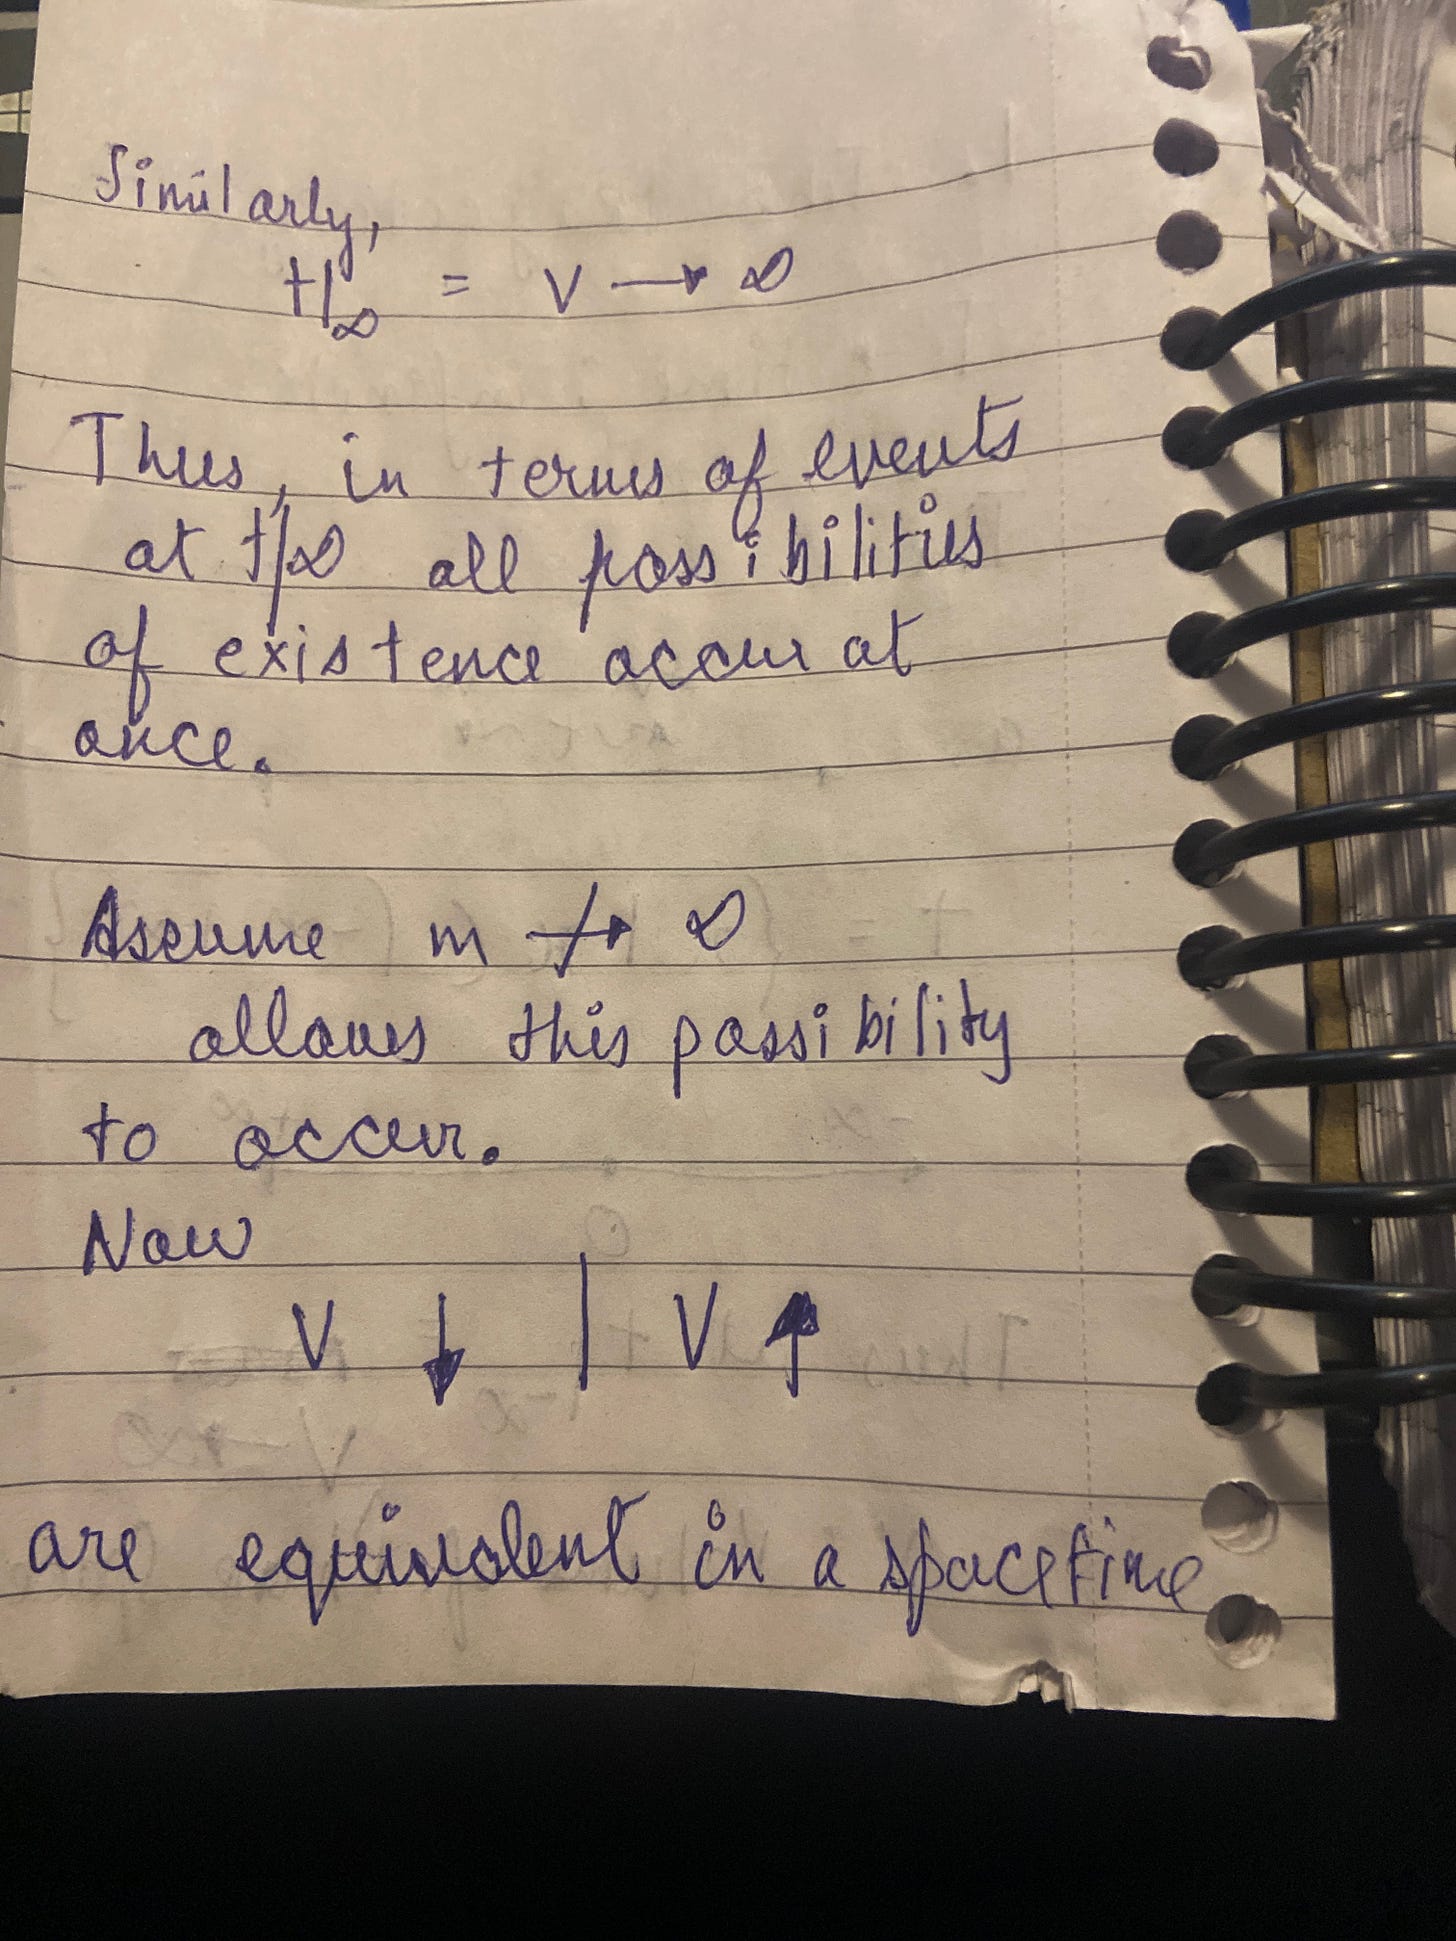 Similarly,
t|∞ = V → ∞
Thus, in terms of events
at t|∞ all possibilities
of existence occur at
once.
Assume m ↛ ∞
allows this possibility
to occur.
Now
V ↓ | V ↑
are equivalent in a spacetime